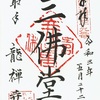 奉拝
令和二年
五月二十二日
三佛堂
取手
龍禅寺